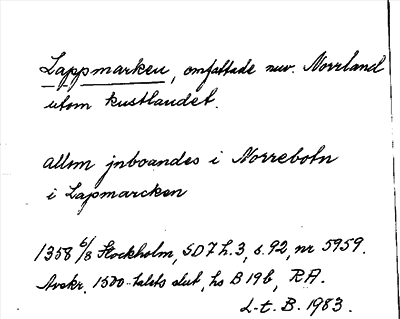 Lappmarken, omfattade nuv. Norrland
utom kustlandet.
allom jnboandes i Norrebotn
i Lapmarcken
1358 6/8 Stockholm, SD 7 h.3, s.92, nr 5959.
Avskr. 1500-talets slut, hs B 196, RA.
L-t. B. 1983.